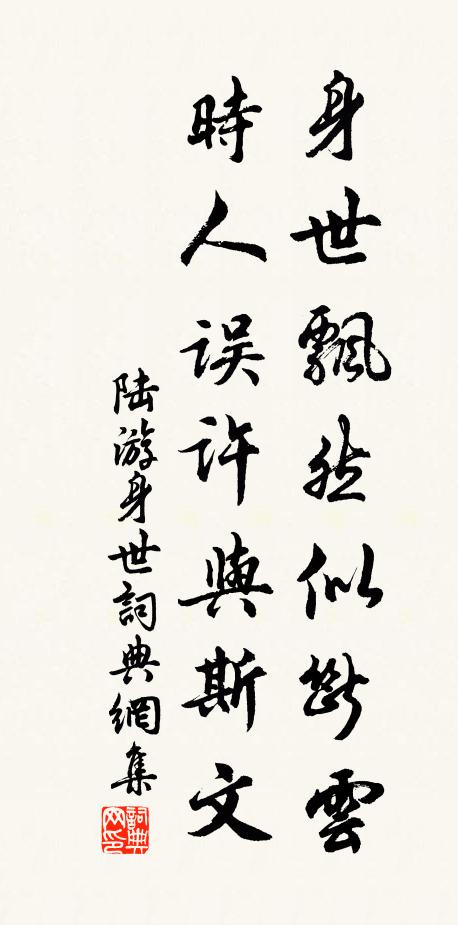 身世飄然似斷雲
時人误许與斯文
陆游身世詞典網集
詞典网印